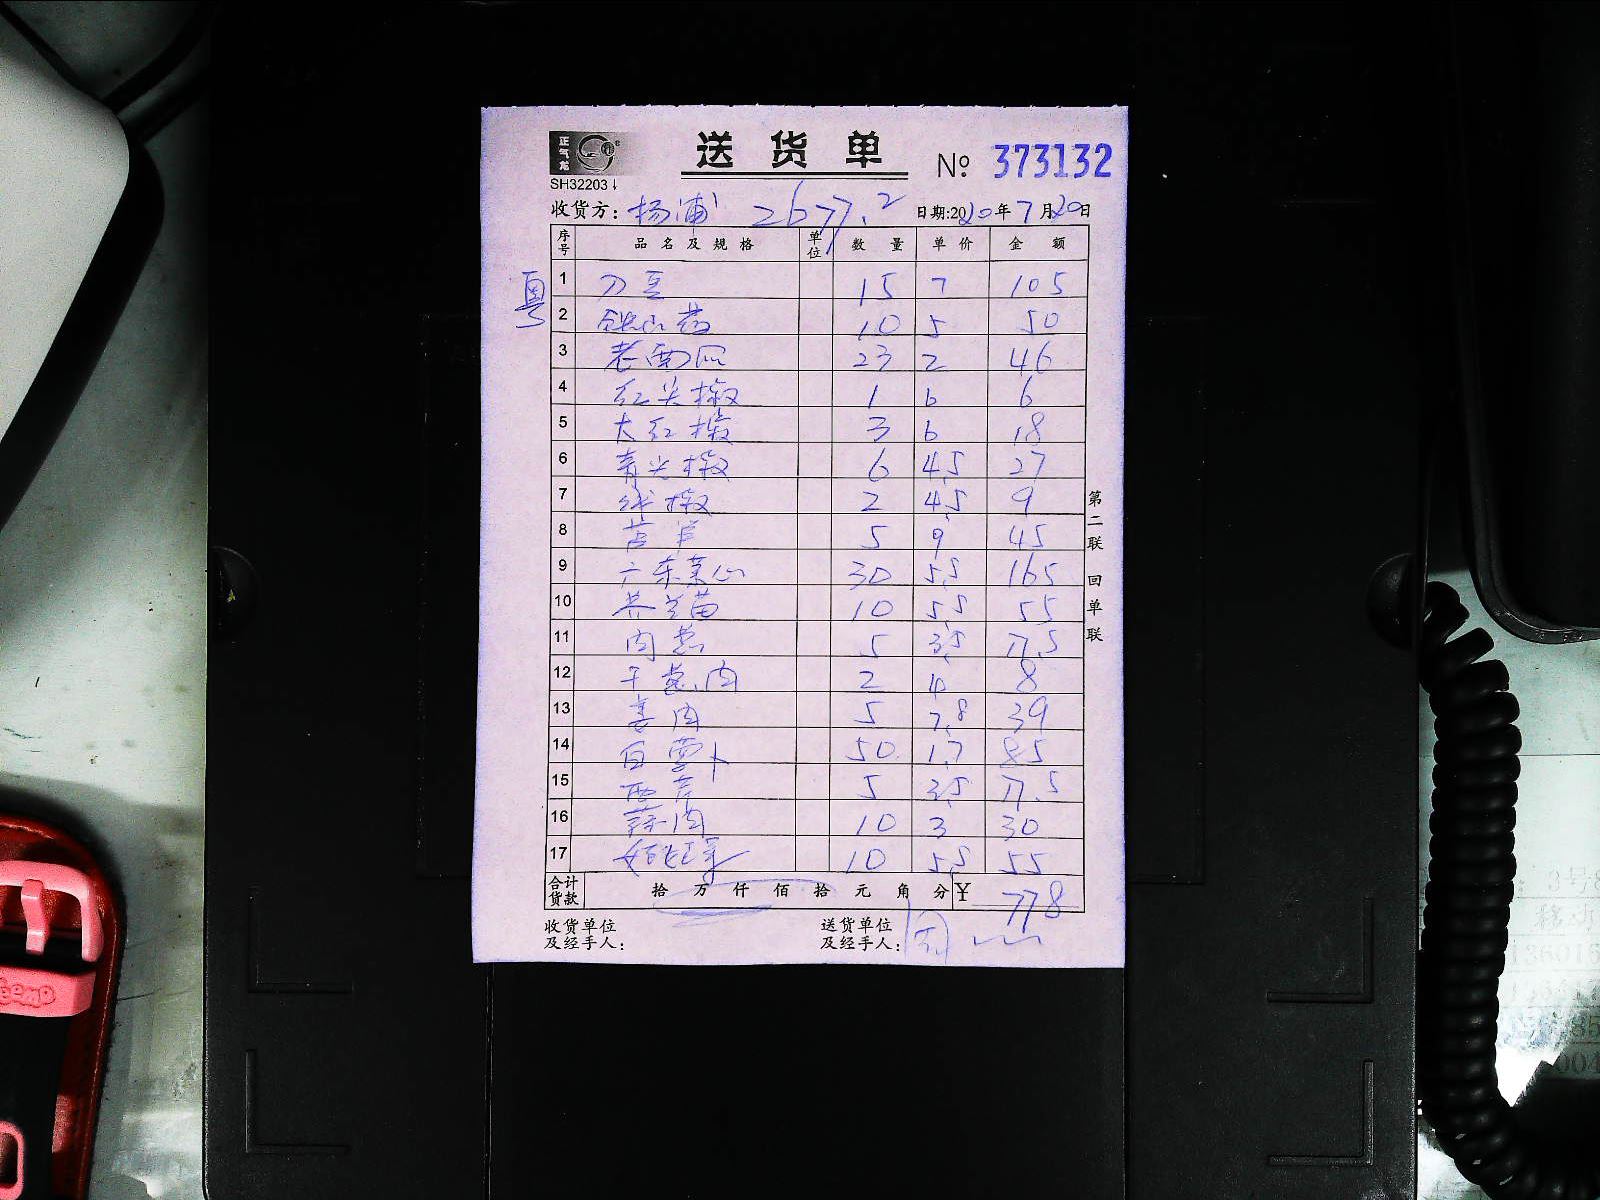 正气龙
送货单
SH32203
№ 373132
收货方：杨浦 2677.2 日期:2020年7月20日
序号 品名及规格 单位 数量 单价 金额
粤
1 刀豆 15 7 105
2 铁山药 10 5 50
3 老南瓜 23 2 46
4 红尖椒 1 6 6
5 大红椒 3 6 18
6 青尖椒 6 4.5 27
7 线椒 2 4.5 9
8 芦笋 5 9 45
9 广东菜心 30 5.5 165
10 芥兰苗 10 5.5 55
11 肉葱 5 3.5 17.5
12 干葱肉 2 4 8
13 姜肉 5 7.8 39
14 白萝卜 50 1.7 85
15 西芹 5 3.5 17.5
16 蒜肉 10 3 30
17 10 5.5 55
合计货款 拾 万 仟 佰 拾 元 角 分 ¥ 778
收货单位及经手人：
送货单位及经手人：
第二联 回单联